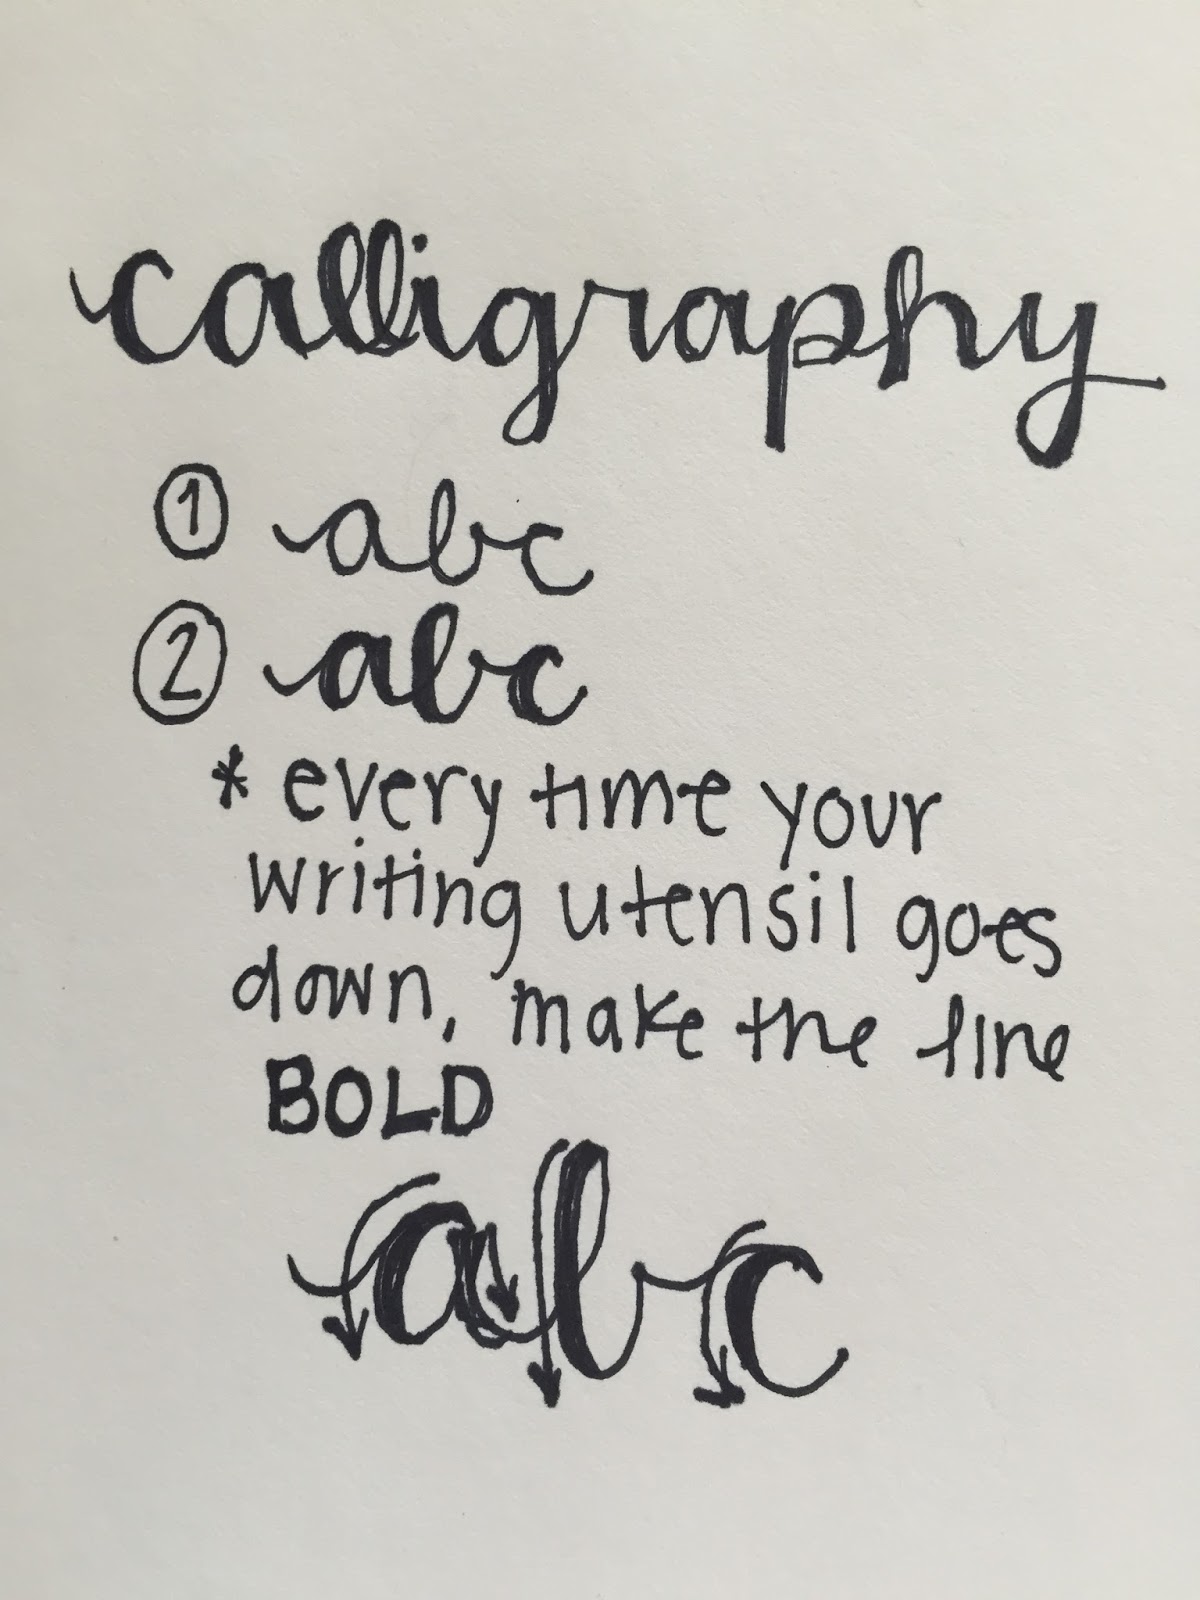 calligraphy
1 abc
2 abc
* every time your
writing utensil goes
down, make the line
BOLD
abc